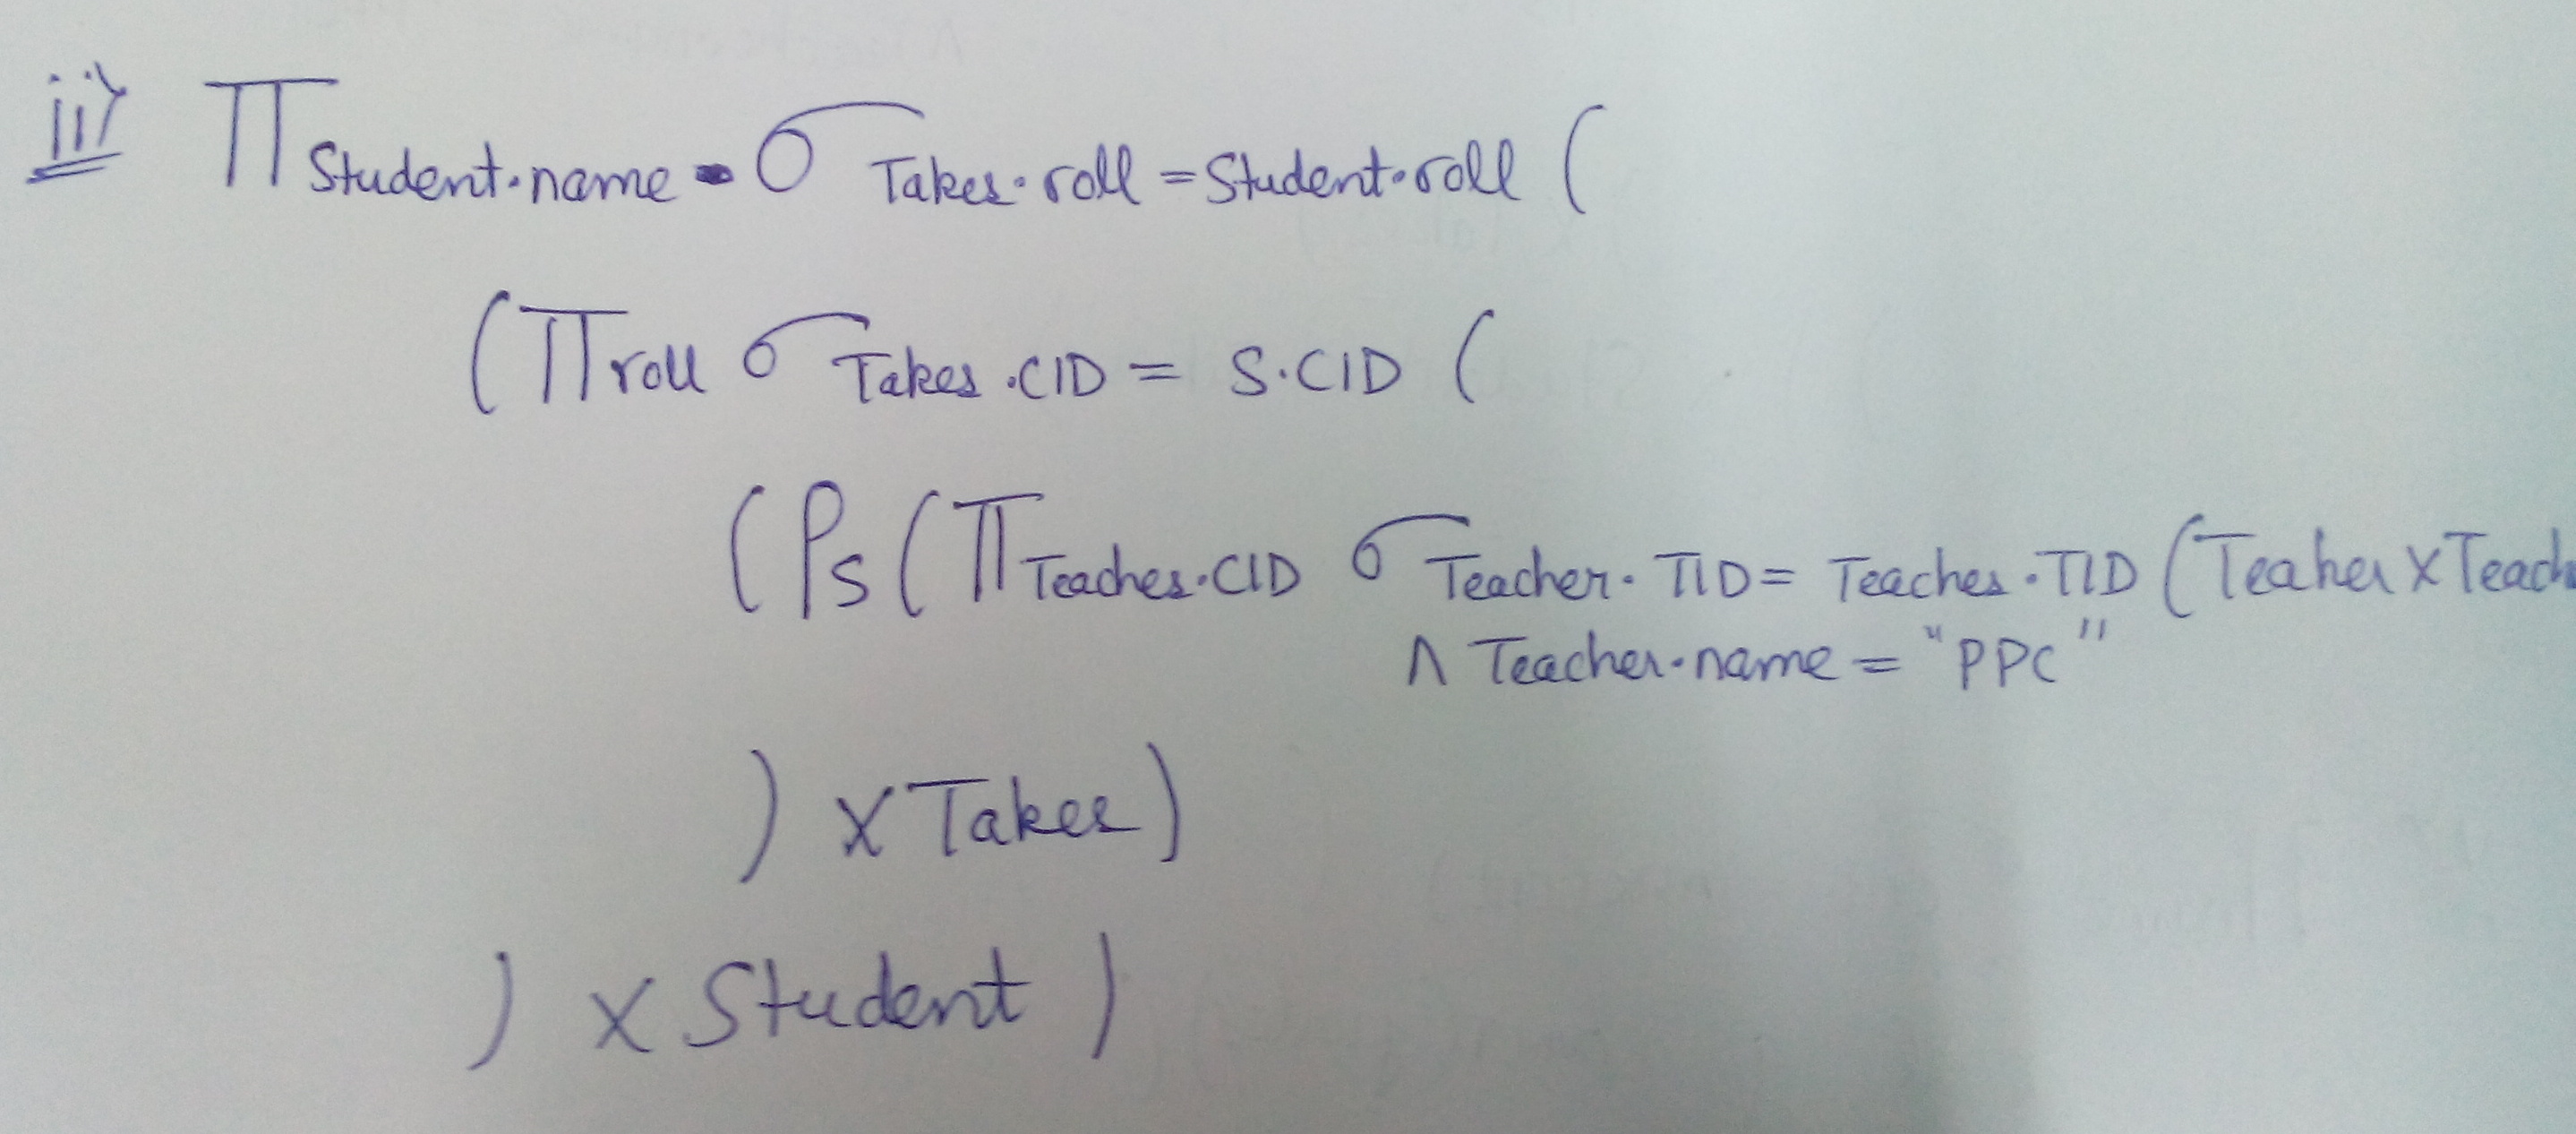 ii) Π Student.name σ Takes.roll = Student.roll (
(Π roll σ Takes.CID = S.CID (
(ρs (Π Teaches.CID σ Teacher.TID = Teaches.TID (Teaher X Teach
∧ Teacher.name = "PPC"
) X Takes)
) X Student )